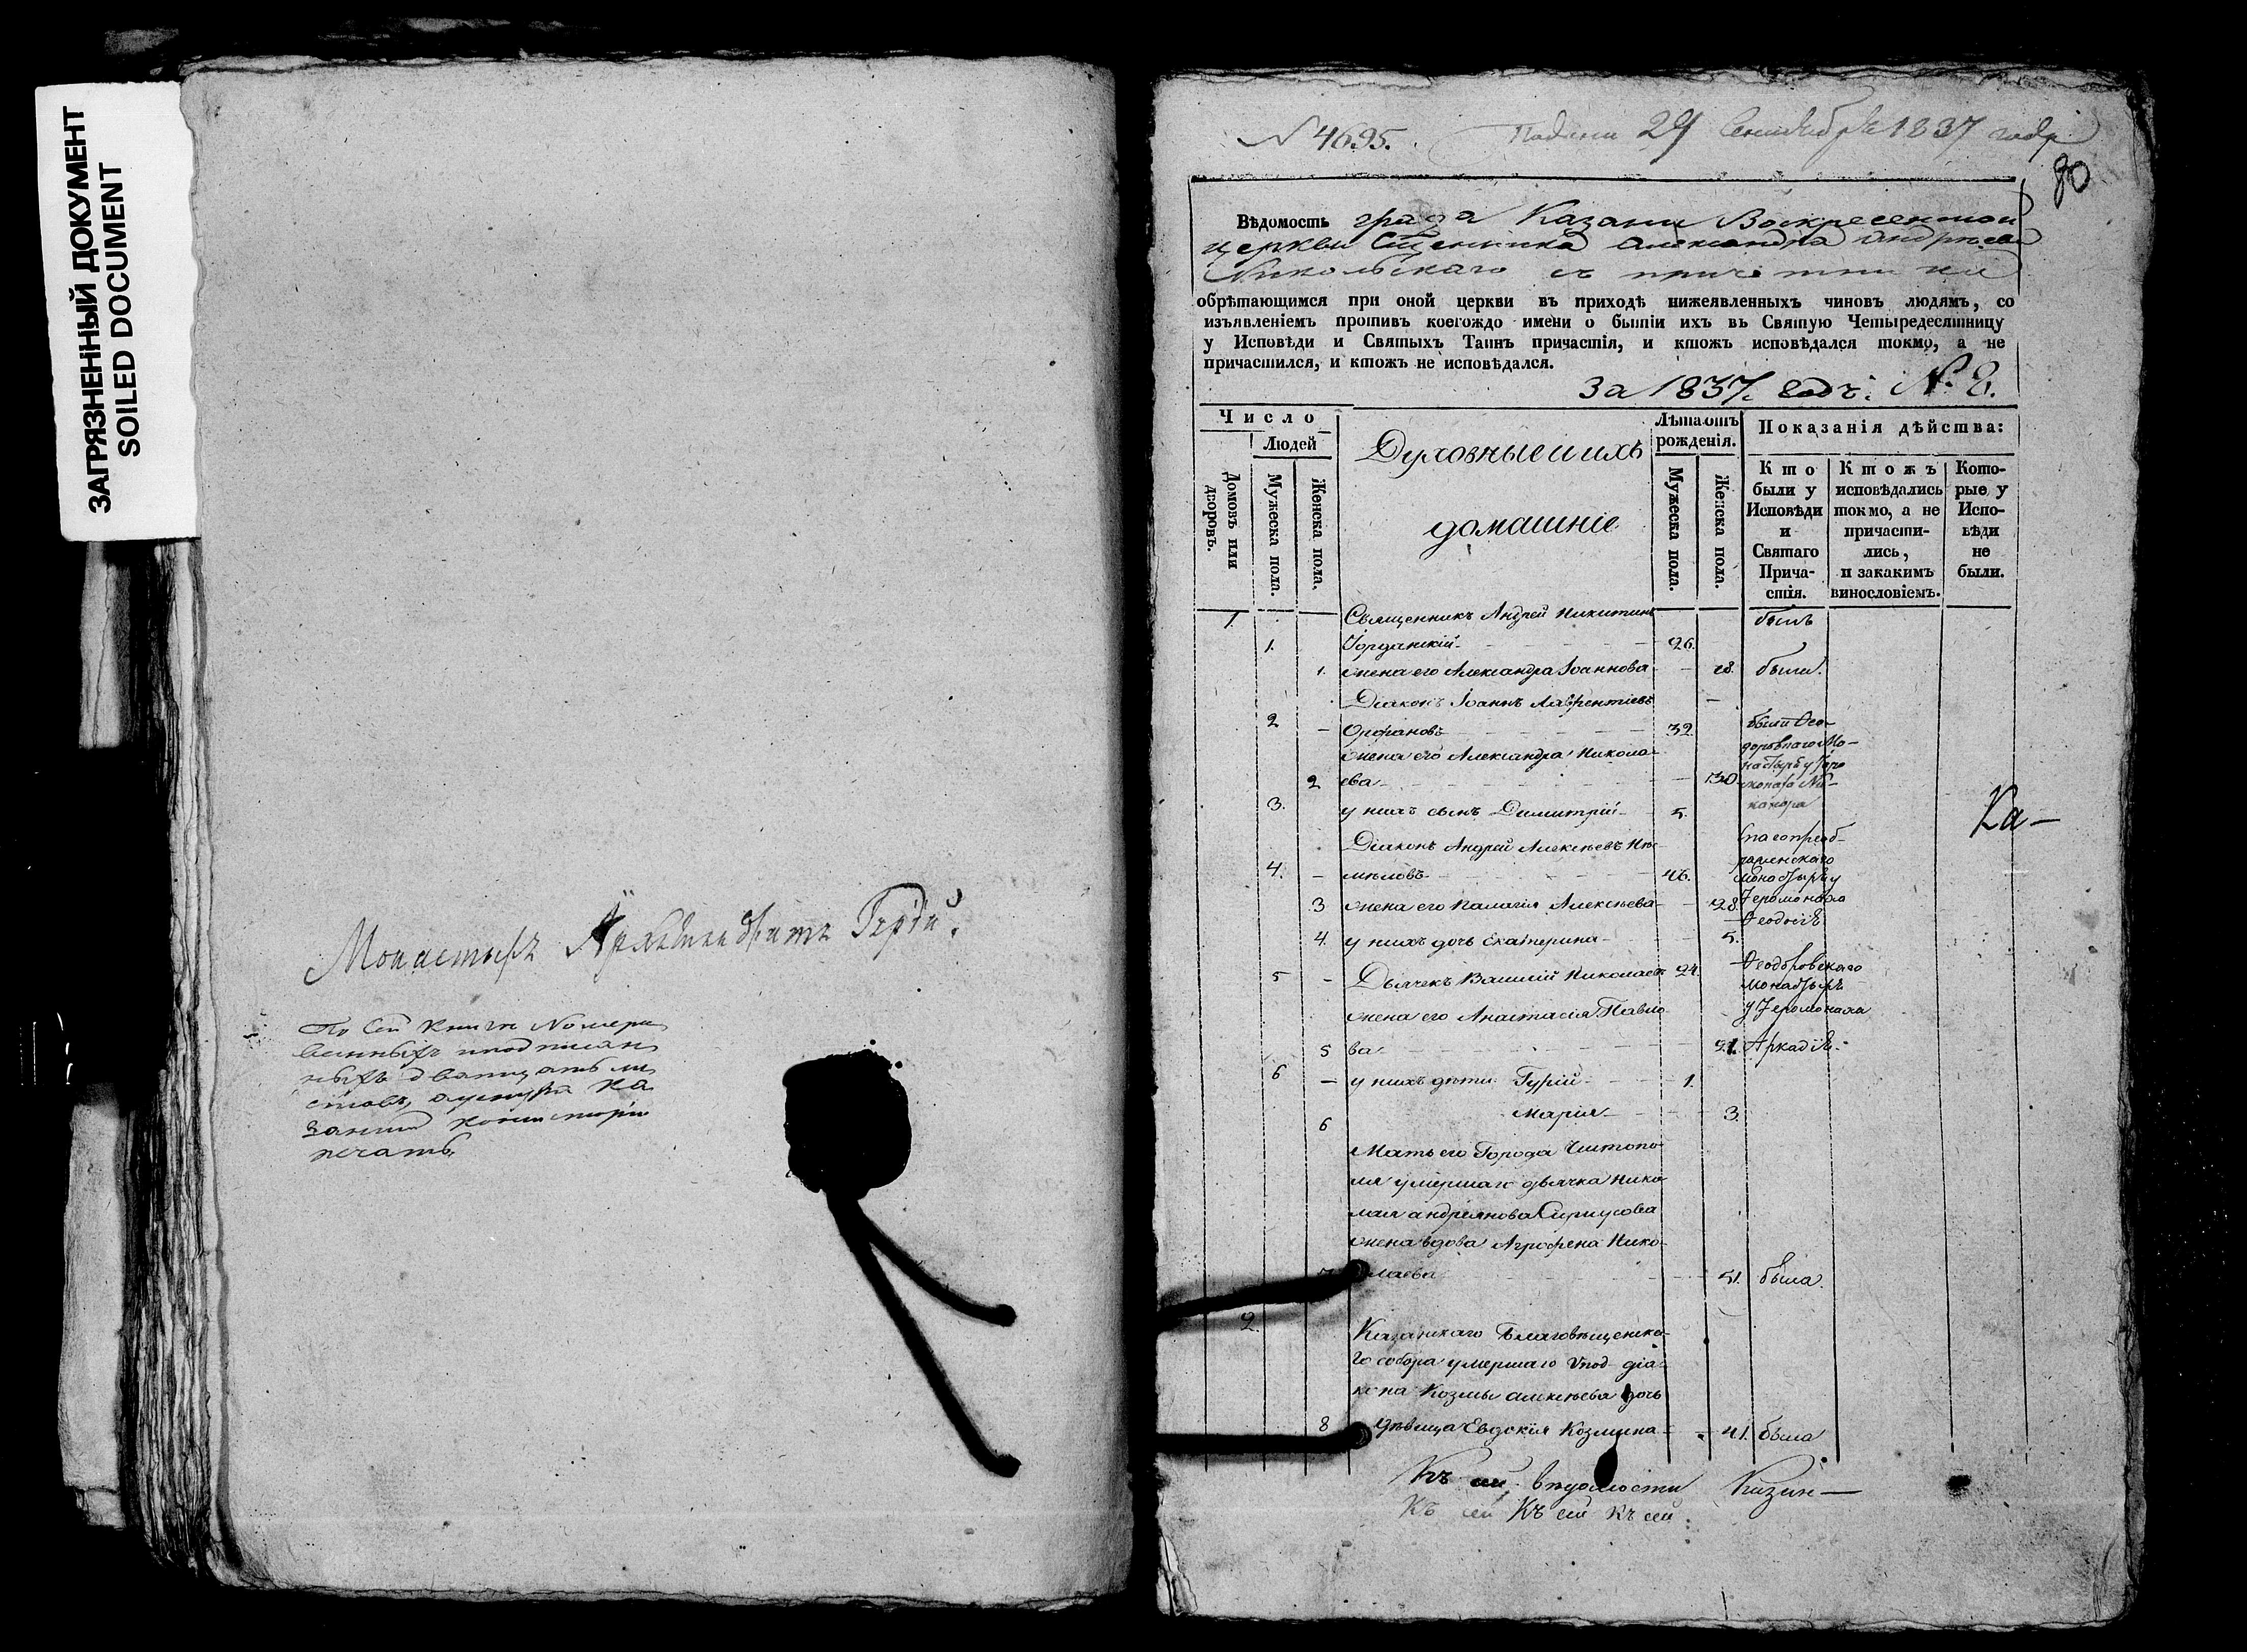 ЗАГРЯЗНЕННЫЙ ДОКУМЕНТ
SOILED DOCUMENT
Монастырь Архимандритъ Гурій.
По сей книге Номеро
ванныхъ и подписан
ныхъ двадцать ли
стовъ, у шнура Ка
занской консисторіи
печать
N 4695. Подана 29 Сентября 1837 года
80
Вѣдомость града Казани Воскресенской
церкви Священника Александра Андреева
Никольскаго съ причетники
обрѣтающимся при оной церкви въ приходѣ нижеявленныхъ чиновъ людямъ, со
изъявленіемъ противъ коегождо имени о бытіи ихъ въ Святую Четыредесятницу
у Исповѣди и Святыхъ Таинъ причастія, и ктожъ исповѣдался токмо, а не
причастился, и ктожъ не исповѣдался.
За 1837. годъ. №. 8.
Число
Домовъ или дворовъ.
Людей
Мужеска пола.
Женска пола.
Духовные и ихъ
домашніе
Лѣта отъ рожденія.
Мужеска пола.
Женска пола.
Показанія дѣйства:
Кто были у Исповѣди и Святаго Причастія.
Ктожъ исповѣдались токмо, а не причастились, и закакимъ винословіемъ.
Которые у Исповѣди не были.
1. Священникъ Андрей Никитинъ былъ
1. Іорданскій 26.
1. жена его Александра Іоаннова 18. была.
Діаконъ Іоаннъ Лаврентіевъ
2 Орфановъ 32 были Ѳео-
доровскаго Мо-
жена его Александра Никола-
настыря у Іеро
2 ева 30. монаха Ни-
канора
3. у нихъ сынъ Димитрій 5.
Спасопреоб-
Діаконъ Андрей Алексѣевъ
раженскаго
4. 46. монастыря у
3 жена его Палагія Алексѣева 28. Іеромонаха
Ѳеодосія
4. у нихъ дочь Екатерина 5.
5 Дьячекъ Василій Николаевъ 24. Ѳеодоровскаго
монастыря
жена его Анастасія Павло- у Іеромонаха
5 ва 21. Аркадія.
6 у нихъ дѣти Гурій 1.
6 Марія 3.
Мать его Города Чистопо-
ля умершаго дьячка Нико-
лая Андреянова
жена вдова Агрофена Нико-
7 лаева 51. была.
2. Казанскаго Благовѣщенска-
го собора умершаго Упод-діа-
кона Козмы Алексѣева дочь
8 дѣвица Евдокія Козмина 41. была
Ка-
Къ сей вѣдомости Казан-
Къ сей Къ сей Къ сей